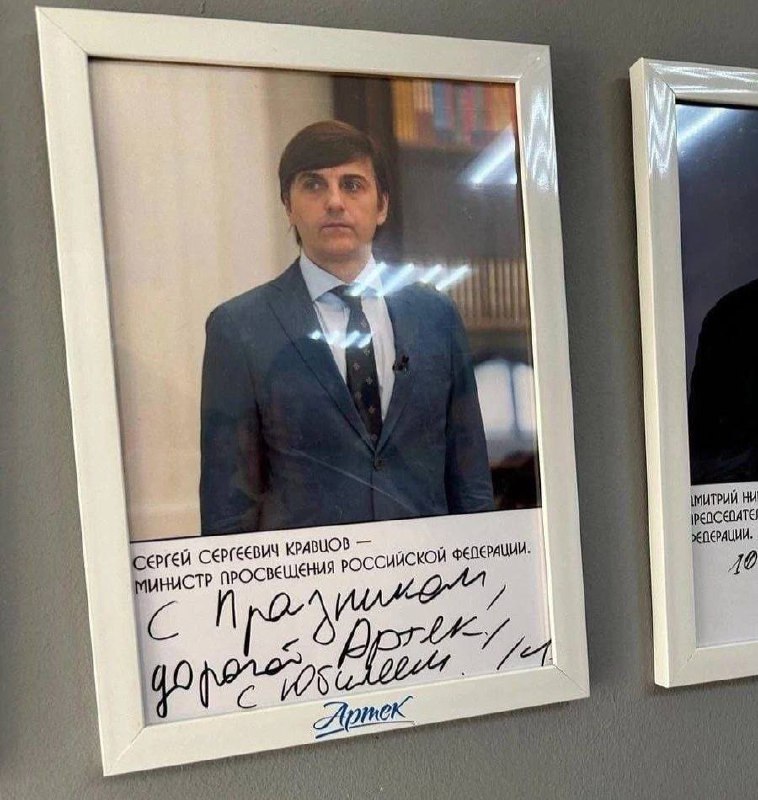 СЕРГЕЙ СЕРГЕЕВИЧ КРАВЦОВ —
МИНИСТР ПРОСВЕЩЕНИЯ РОССИЙСКОЙ ФЕДЕРАЦИИ.
с Празником,
дорогой Артек!
с Юбилеем!
Артек
ДМИТРИЙ НИ
ПРЕДСЕДАТЕЛ
ФЕДЕРАЦИИ.
10